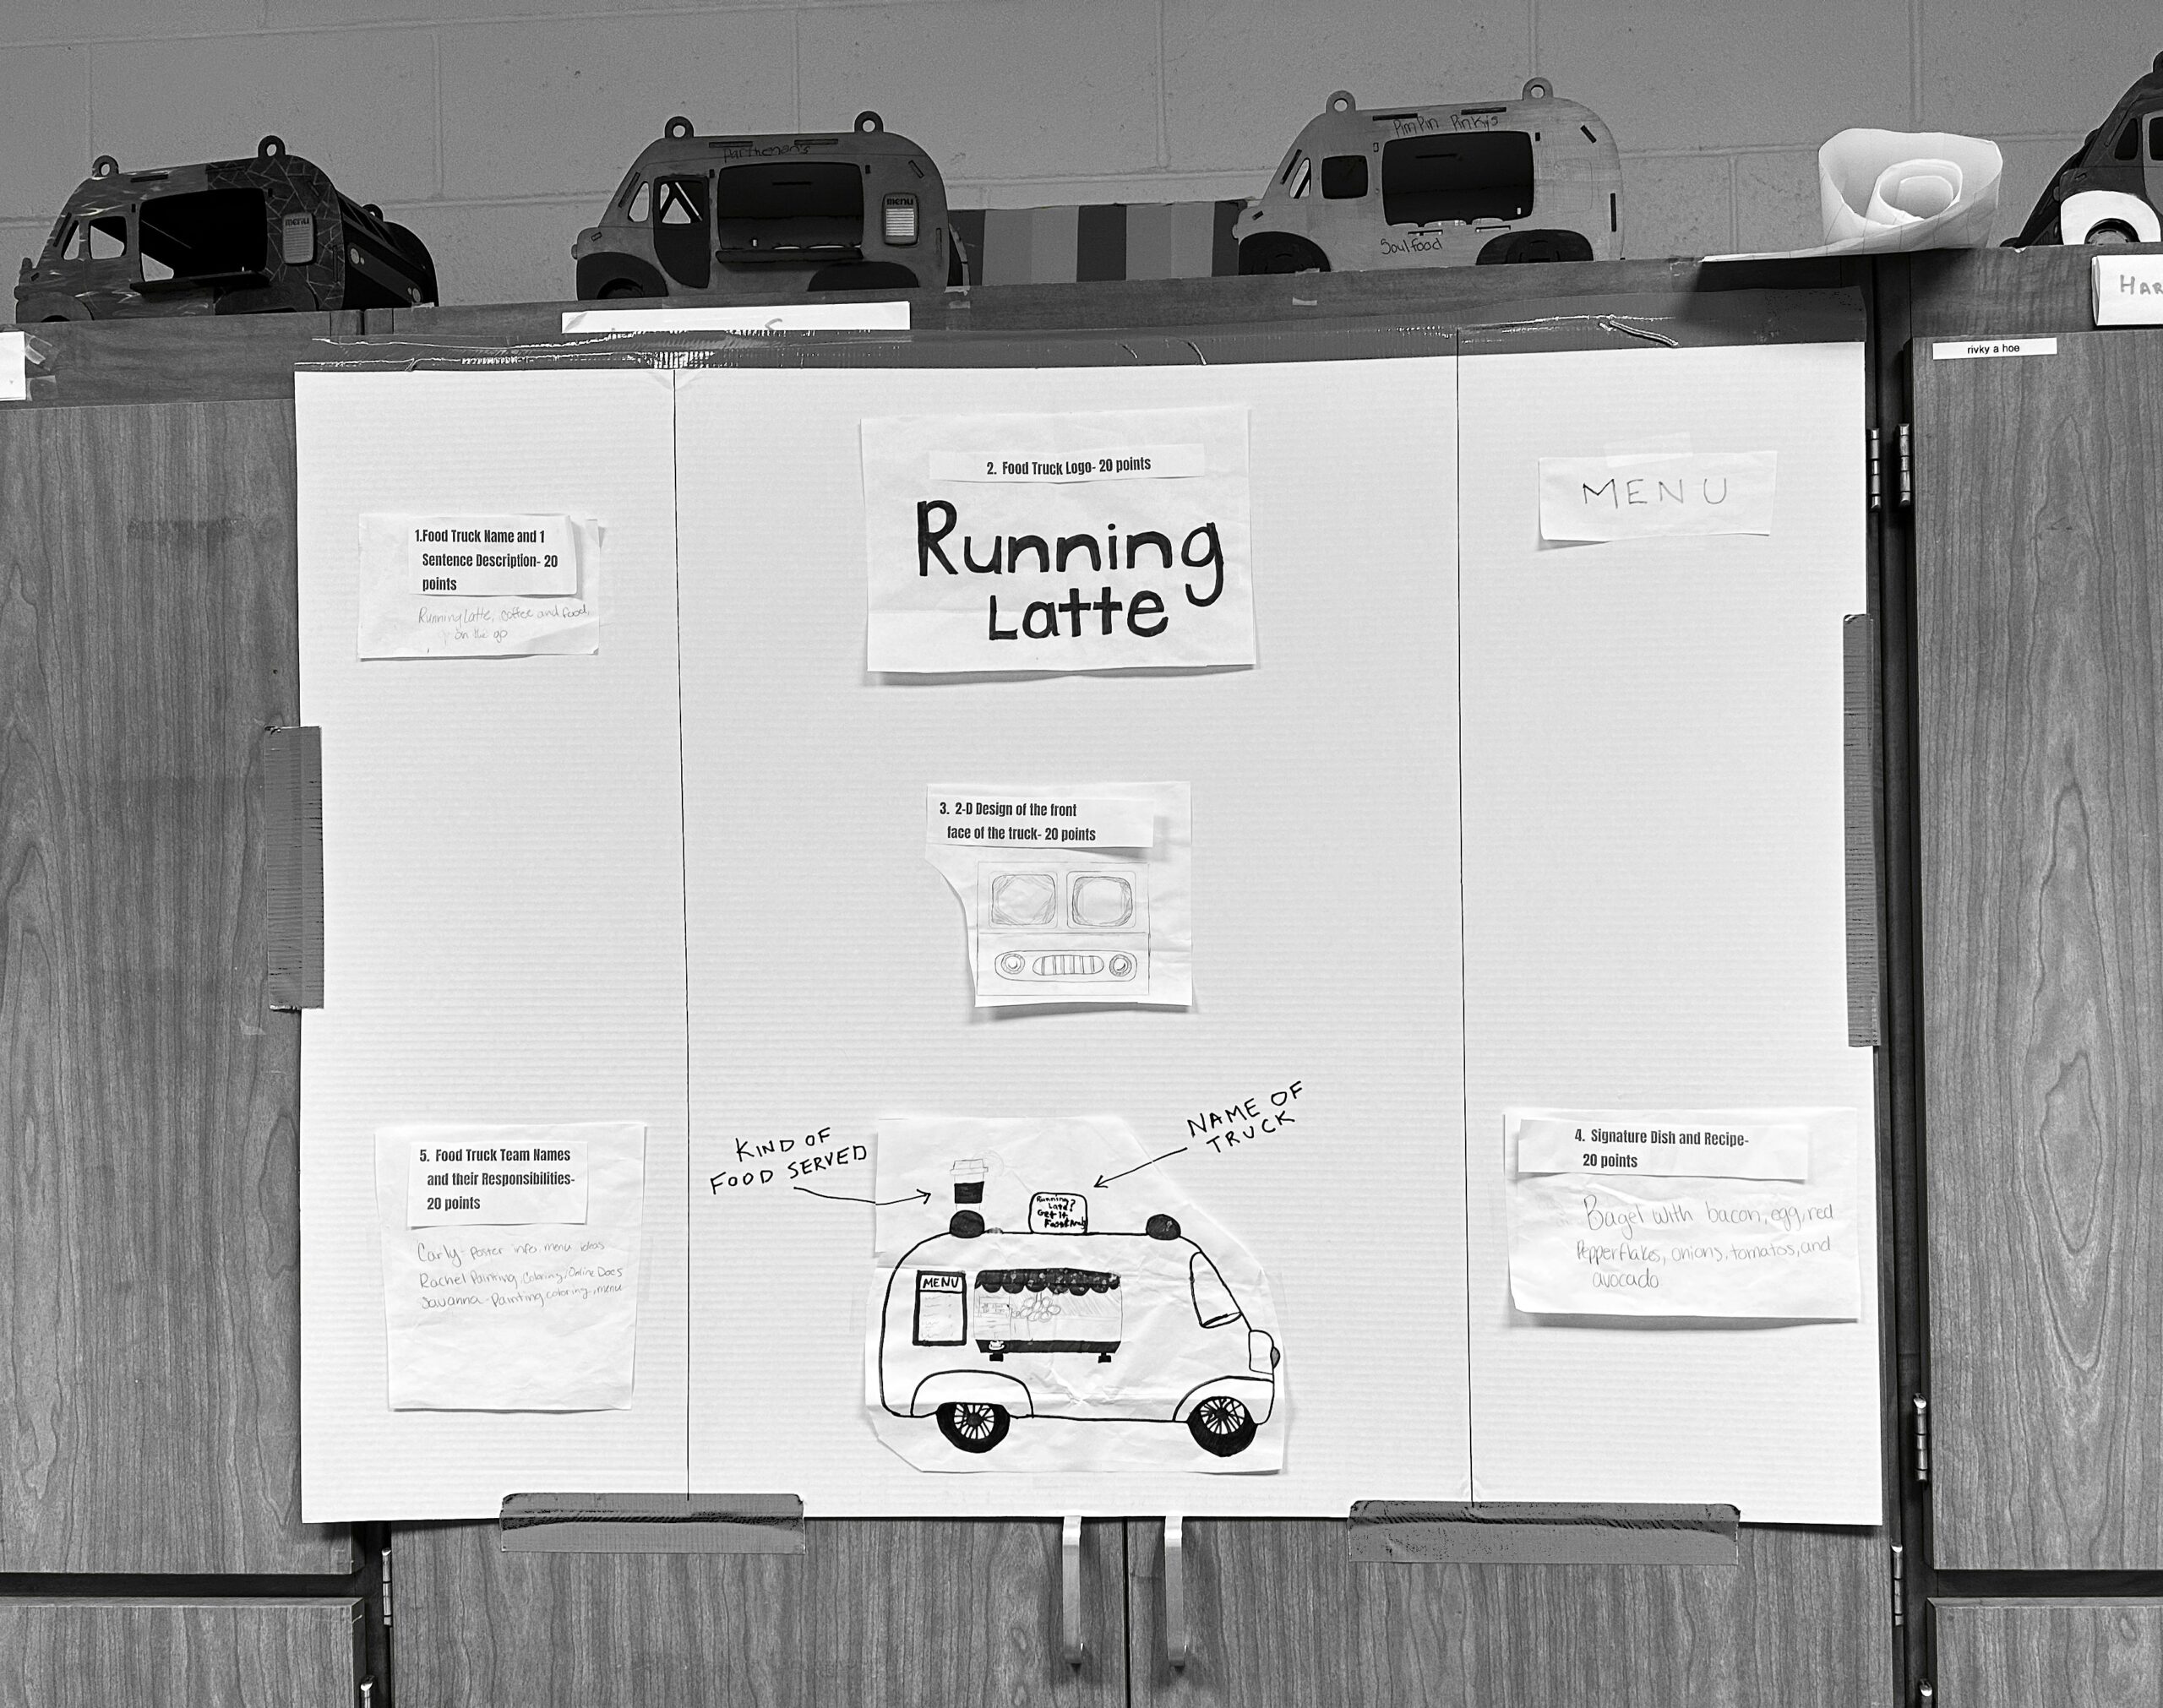 menu
Parthenon's
menu
PimPin Pinky's
Soulfood
HAR
rivky a hoe
1.Food Truck Name and 1
Sentence Description- 20
points
Running Latte, coffee and food
on the go
2. Food Truck Logo- 20 points
Running
Latte
MENU
3. 2-D Design of the front
face of the truck- 20 points
5. Food Truck Team Names
and their Responsibilities-
20 points
Carly- Poster info, menu ideas
Rachel Painting, Coloring, Online Docs
Savanna- Painting coloring, menu
KIND OF
FOOD SERVED
NAME OF
TRUCK
Running
Late?
Get it
MENU
4. Signature Dish and Recipe-
20 points
Bagel with bacon, egg, red
Pepper flakes, onions, tomatos, and
avocado